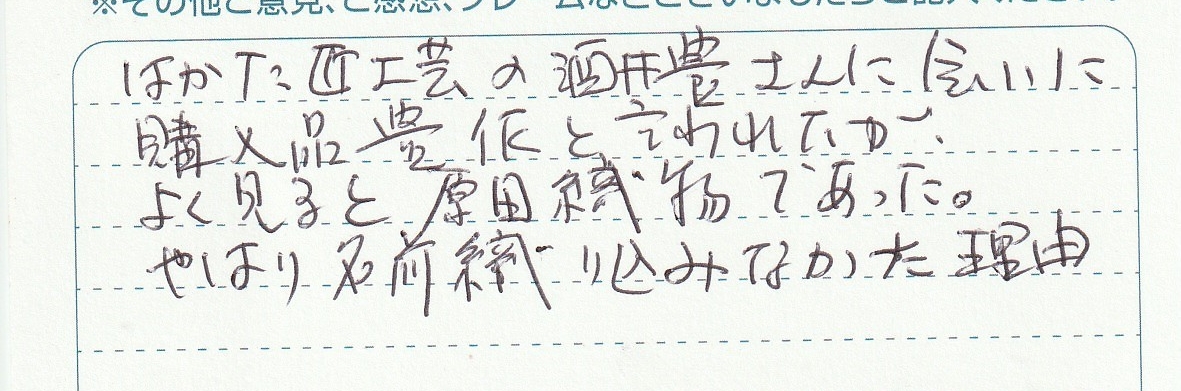 ※その他ご意見、ご感想、クレームなどございましたらご記入ください。
はかた匠工芸の酒井豊さんに会いに
購入品豊作と言われたが、
よく見ると原田織物であった。
やはり名前織り込みなかった理由